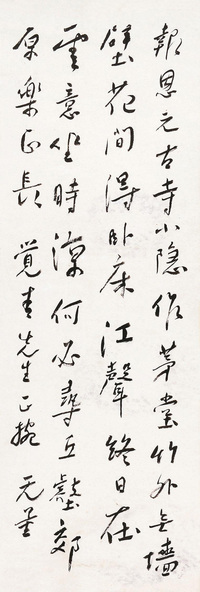 報恩元古寺小隱作茅堂竹外無墻
壁花間得臥床江聲終日在
雲意坐時涼何必尋丘壑郊
原樂正長 覺青先生正腕 无量